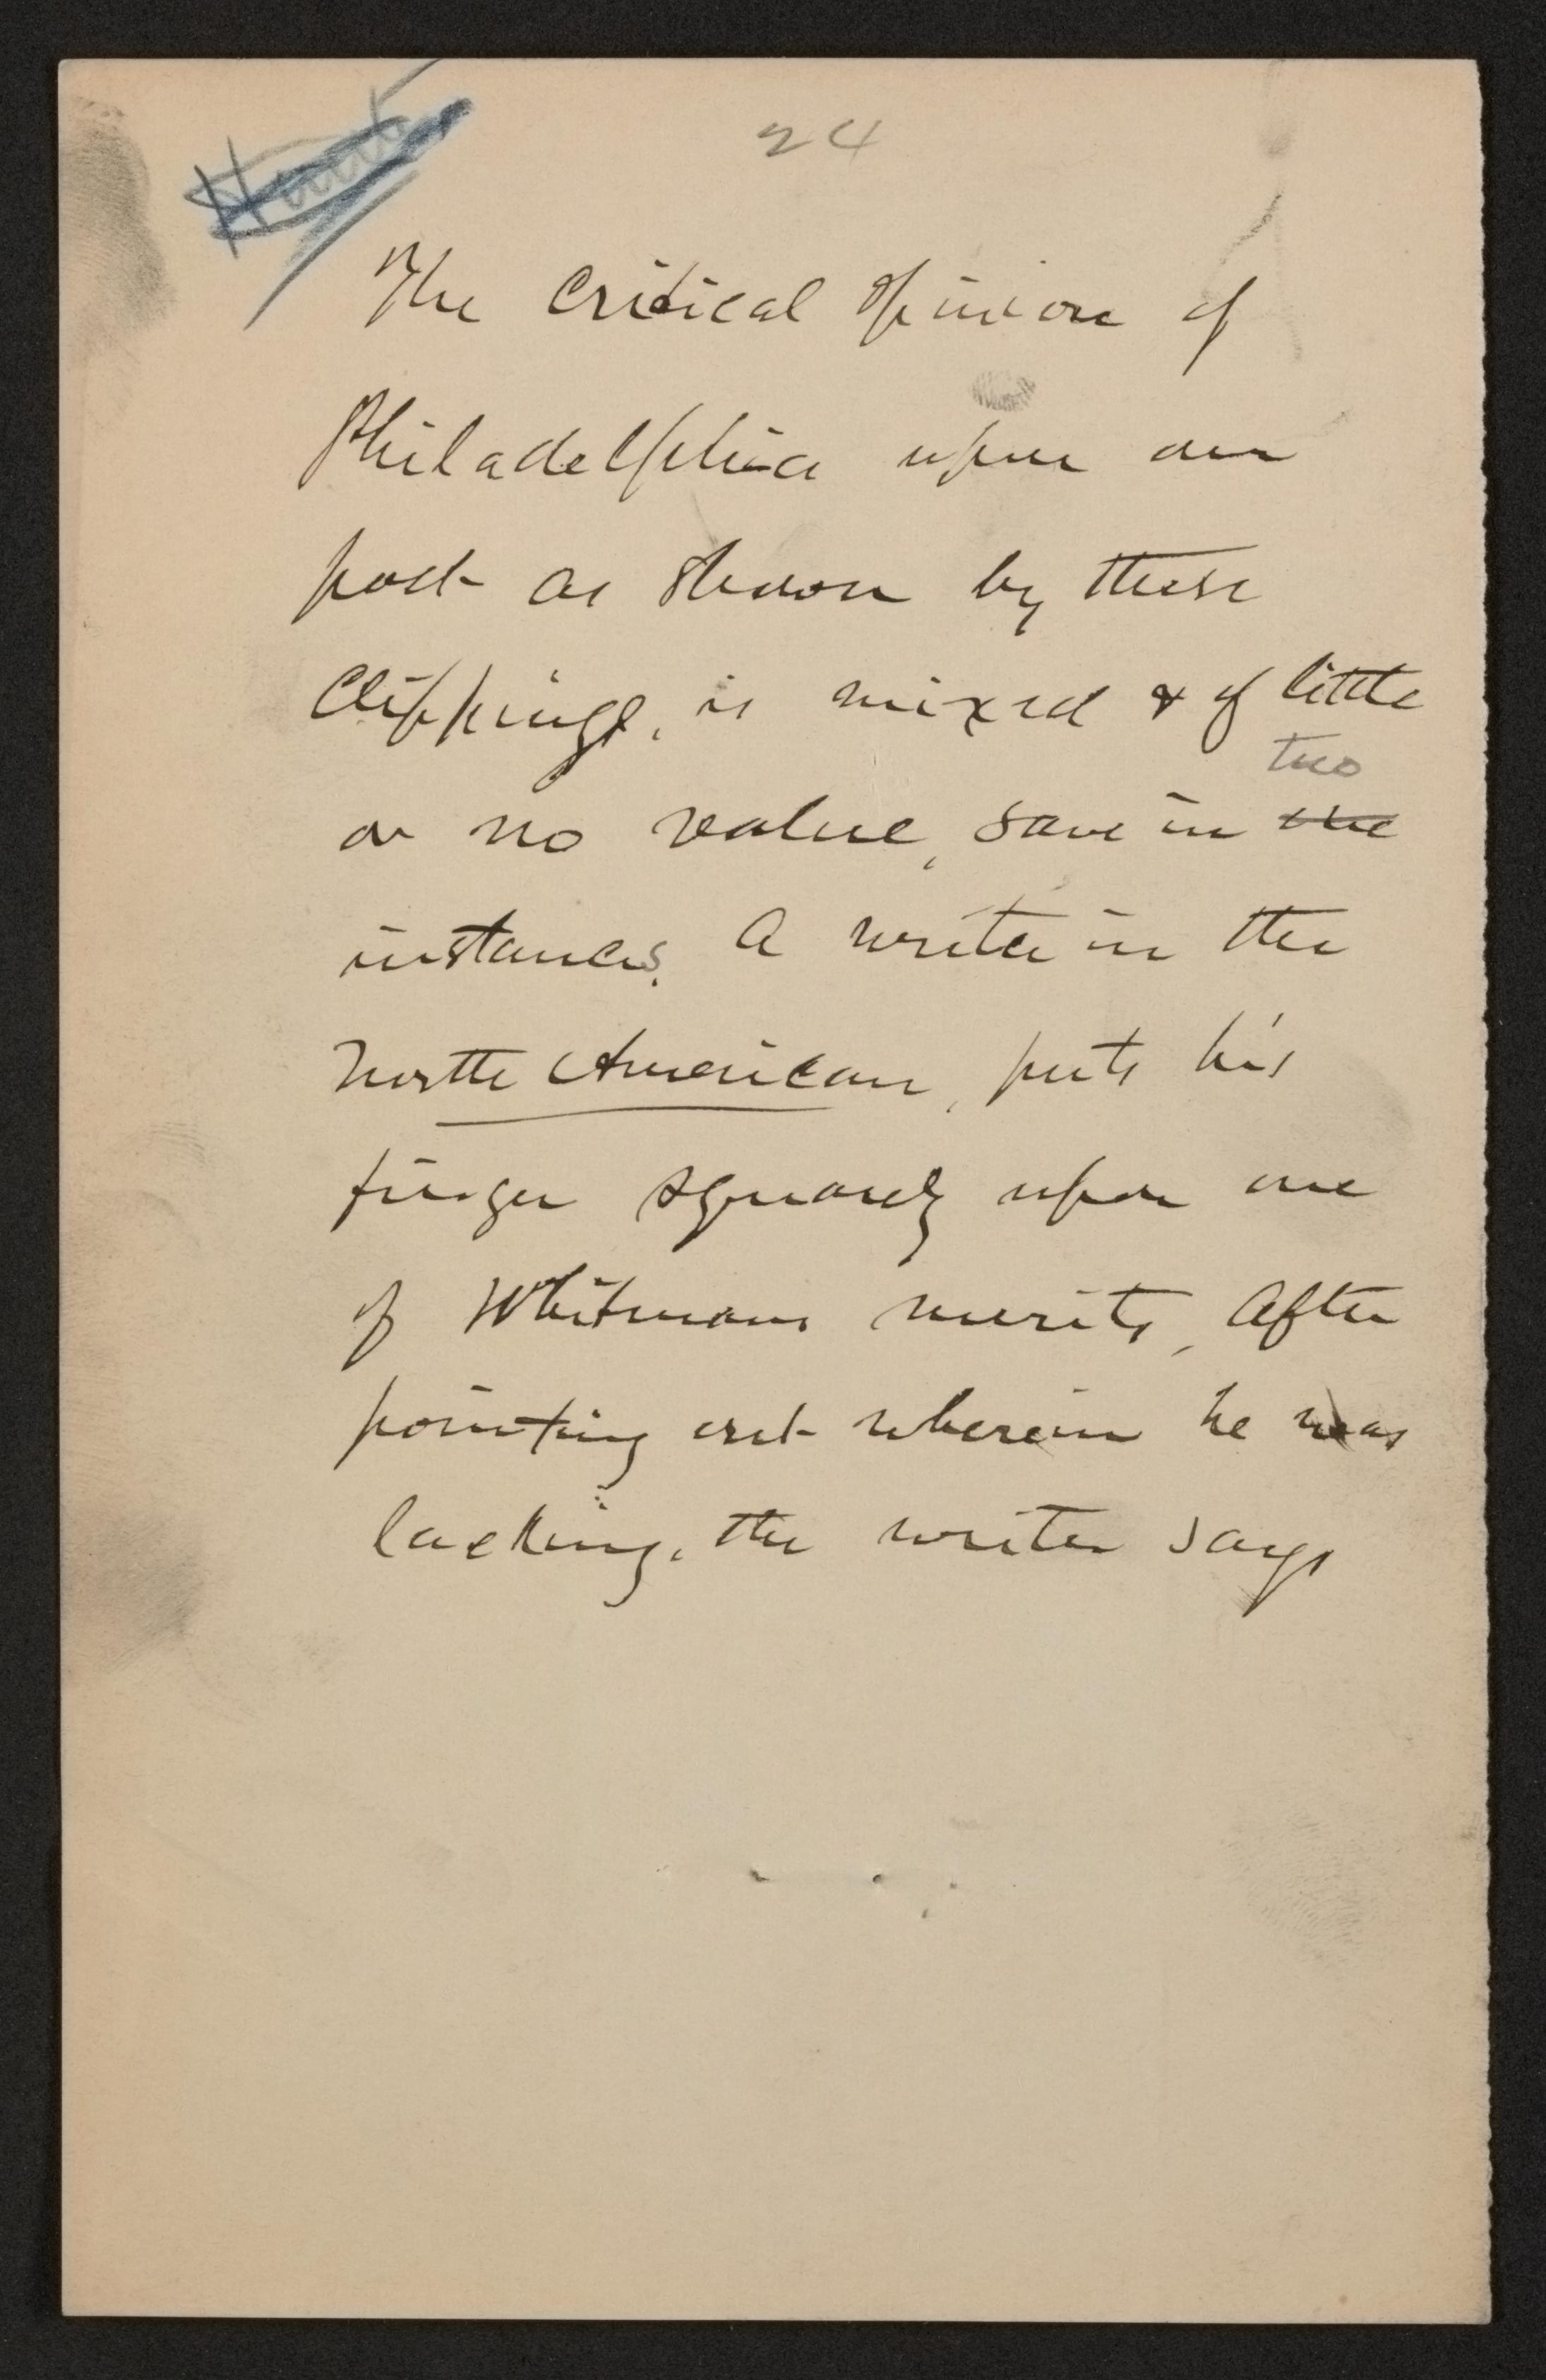 24
The Critical Opinion of
Philadelphia upon our
poet as shown by these
Clippings, is mixed & of little
two
or no value, save in one
instances. A writer in the
North American, puts his
finger squarely upon one
of Whitmans merits, After
pointing out wherein he was
lacking, the writer says